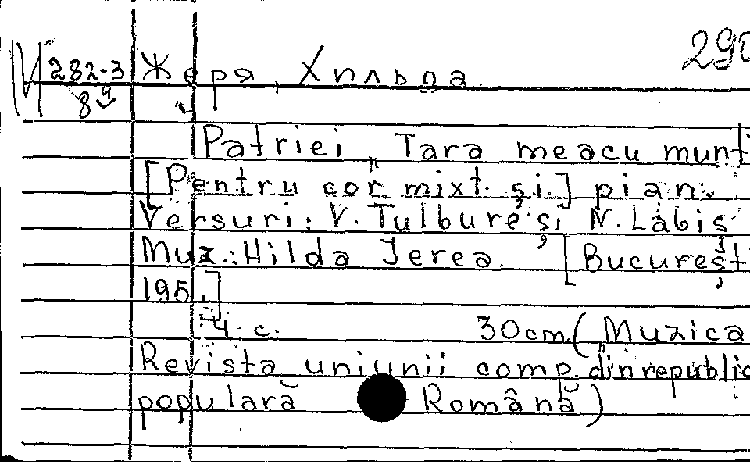 290
И 282-3 Жеря, Хильда
89
Patriei, Tara meacu munti
[Pentru cor mixt. şi.] pian.
Versuri: V. Tulbure şi N. Labiş
Muz.: Hilda Jerea. [Bucureşt
195.]
4 c. 30cm. (Muzica
Revista uniunii comp. din republic
populară Română)